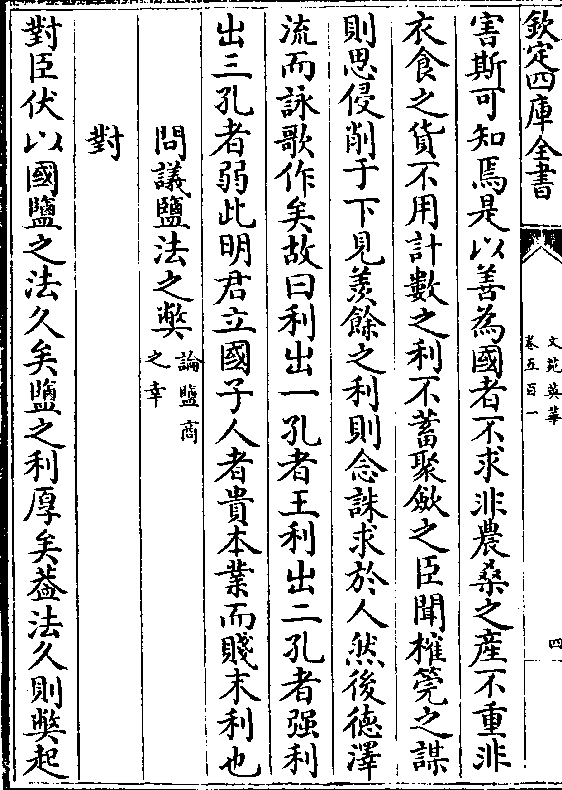 欽定四庫全書
文苑英華
卷五百一
四
害斯可知焉是以善為國者不求非農桑之産不重非
衣食之貨不用計數之利不蓄聚斂之臣聞榷筦之謀
則思侵削于下見羨餘之利則念誅求於人然後德澤
流而詠歌作矣故曰利出一孔者王利出二孔者强利
出三孔者弱此明君立國子人者貴本業而賤末利也
問議鹽法之弊論鹽商之幸
對
對臣伏以國鹽之法久矣鹽之利厚矣葢法久則弊起